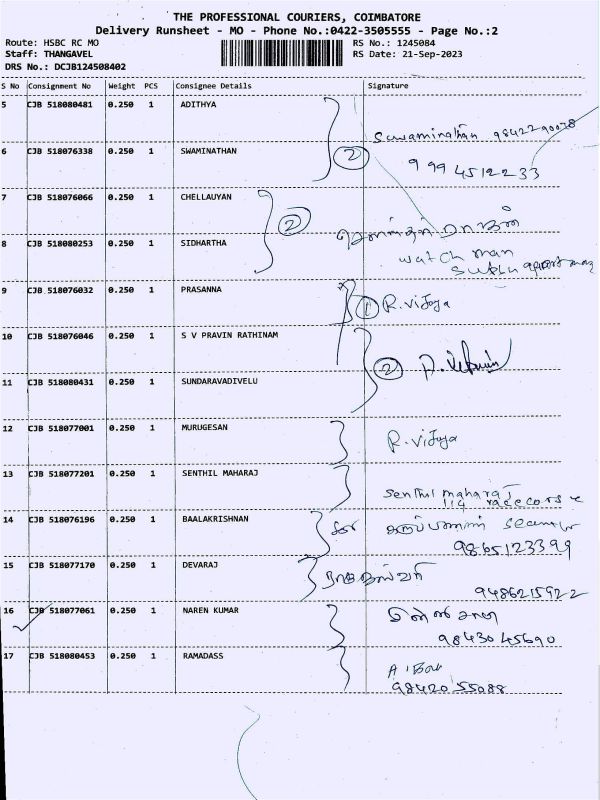 THE PROFESSIONAL COURIERS, COIMBATORE
Delivery Runsheet - MO - Phone No.:0422-3505555 - Page No.:2
Route: HSBC RC MO
Staff: THANGAVEL
DRS No.: DCJB124508402
RS No.: 1245084
RS Date: 21-Sep-2023
S No Consignment No Weight PCS Consignee Details Signature
5 CJB 518080481 0.250 1 ADITHYA
Swaminathan 9842290028
6 CJB 518076338 0.250 1 SWAMINATHAN 2
9994512233
7 CJB 518076066 0.250 1 CHELLAUYAN 2
8 CJB 518080253 0.250 1 SIDHARTHA
watch man
9 CJB 518076032 0.250 1 PRASANNA 1 R.vijaya
10 CJB 518076046 0.250 1 S V PRAVIN RATHINAM
2
11 CJB 518080431 0.250 1 SUNDARAVADIVELU
12 CJB 518077001 0.250 1 MURUGESAN R.vijaya
13 CJB 518077201 0.250 1 SENTHIL MAHARAJ
Senthil maharaj
114 racecorse
14 CJB 518076196 0.250 1 BAALAKRISHNAN
9865123399
15 CJB 518077170 0.250 1 DEVARAJ
9486215922
16 CJB 518077061 0.250 1 NAREN KUMAR
9843045690
17 CJB 518080453 0.250 1 RAMADASS
9842055088